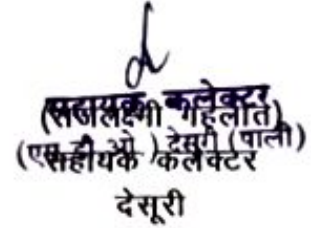 सहायक कलेक्टर
(राजलक्ष्मी गहलोत)
(एस डी ओ ) देसूरी (पाली)
सहायक कलेक्टर
देसूरी